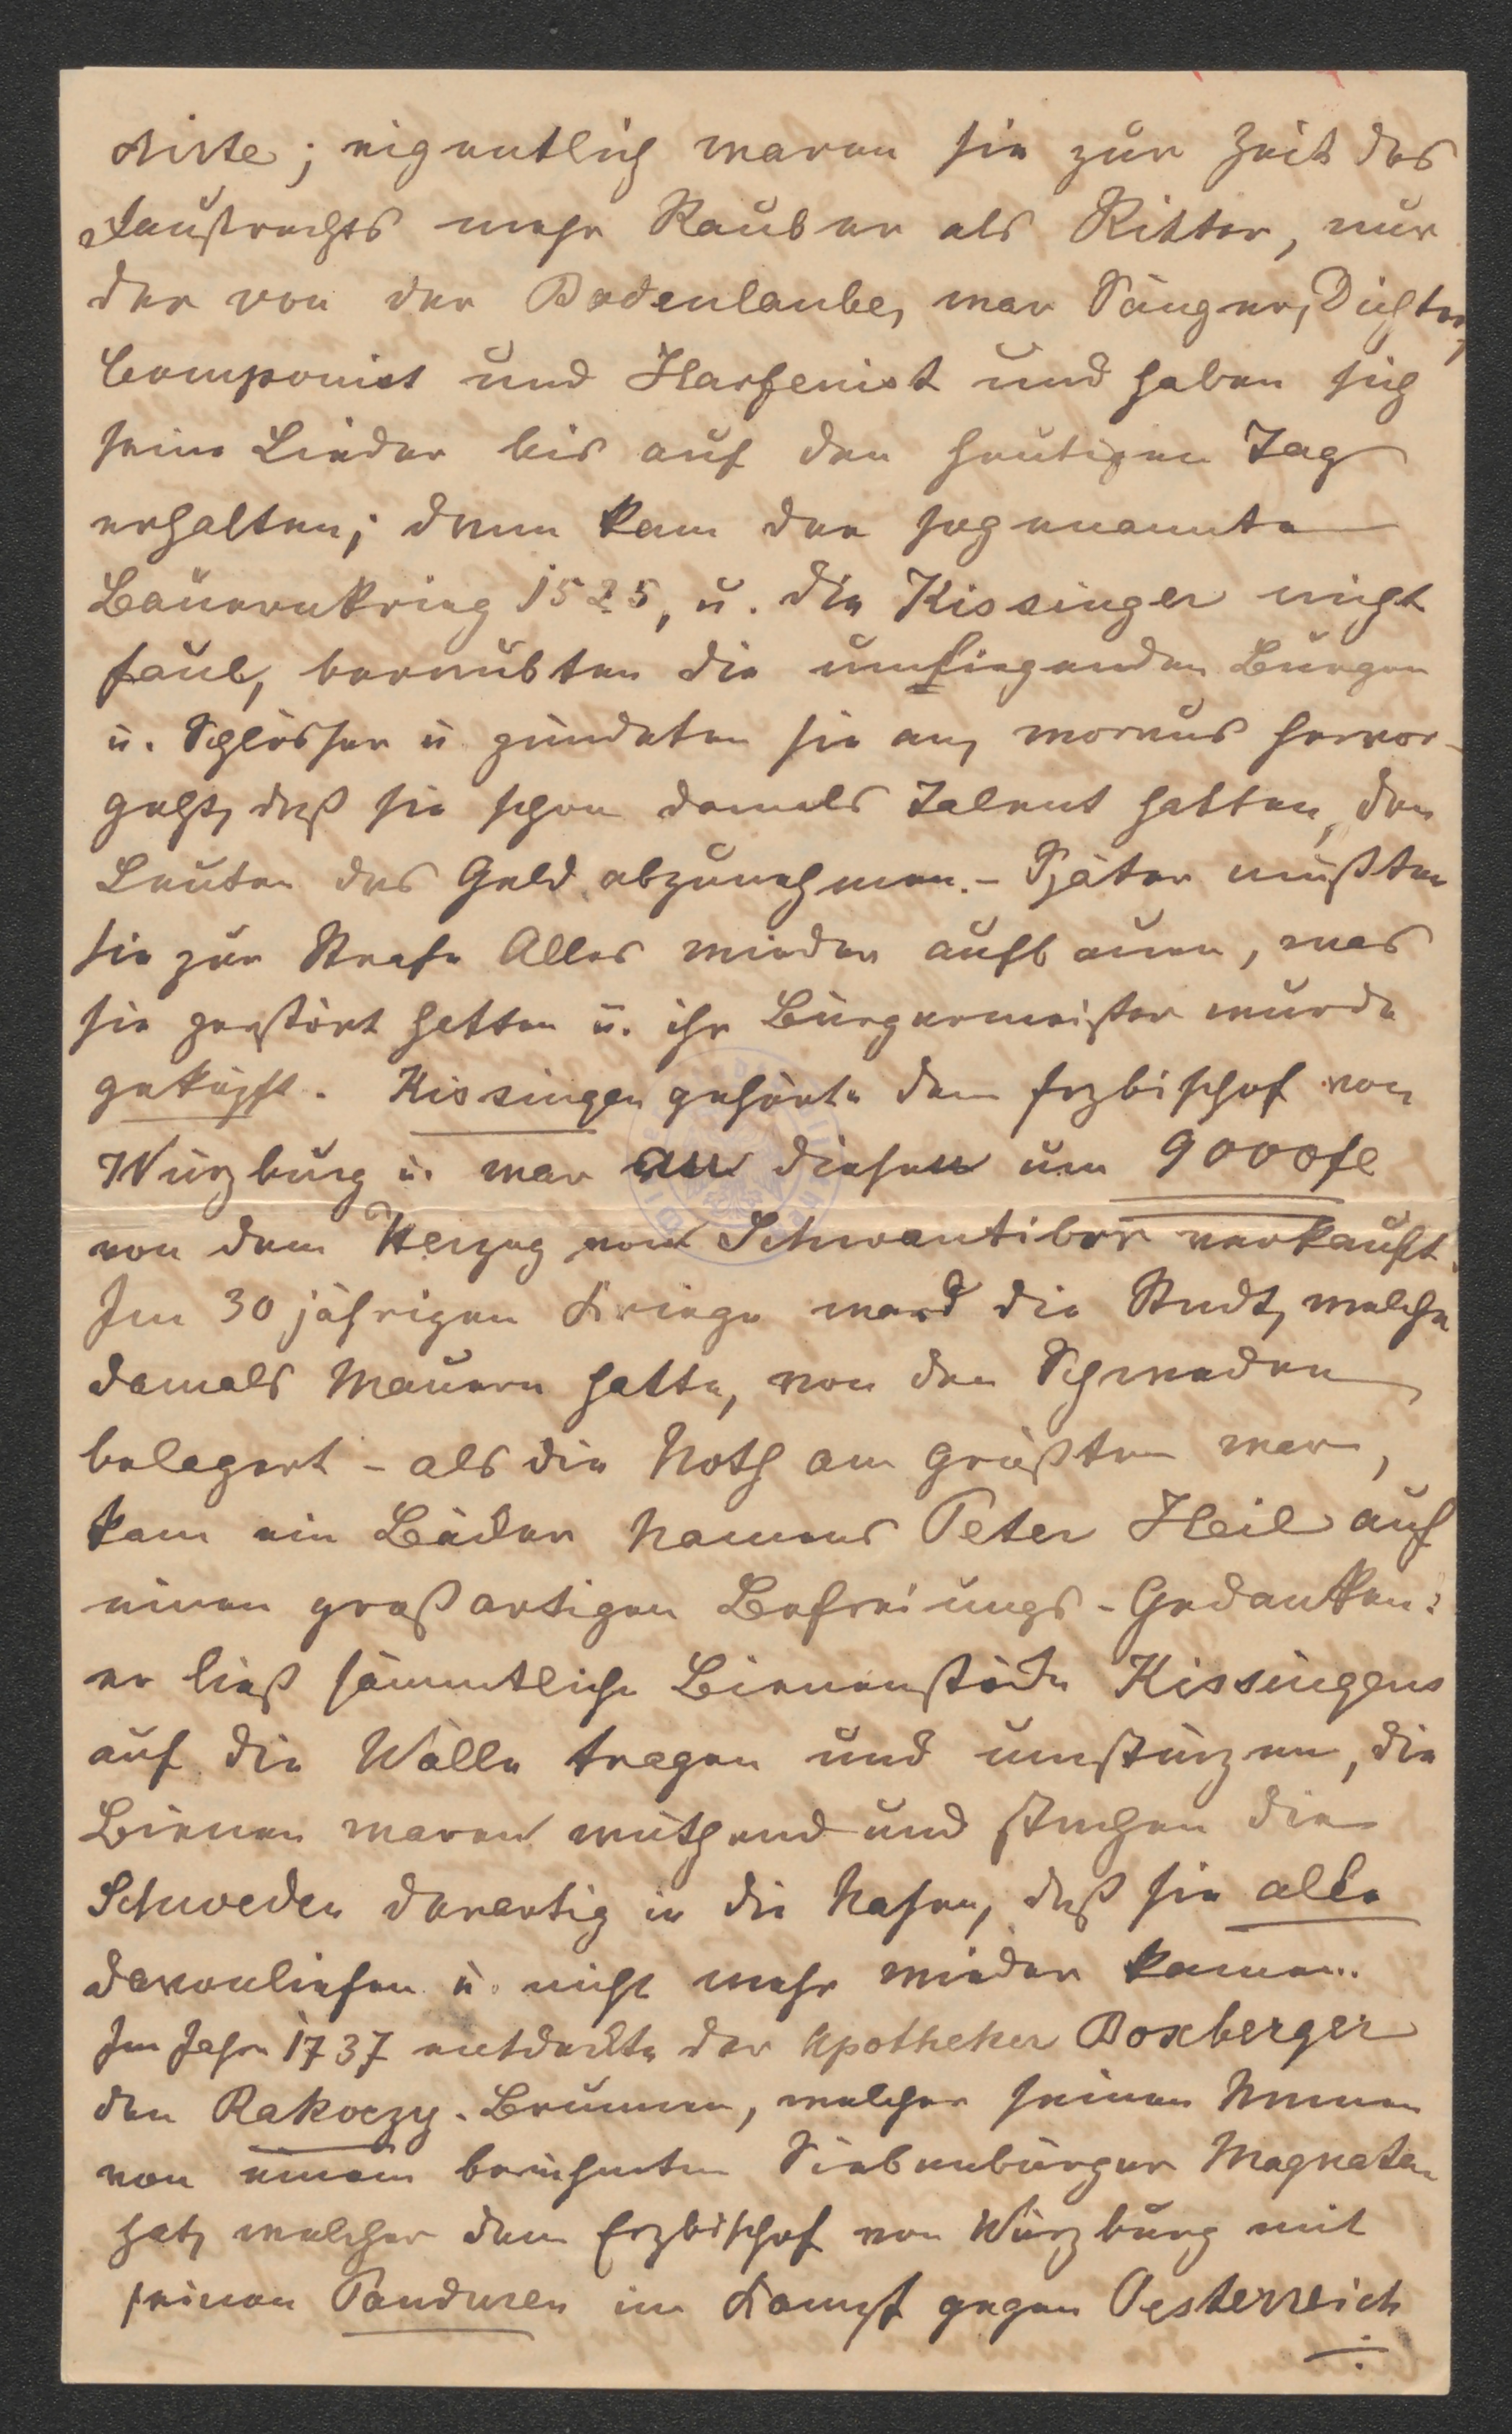 nirte; eigentlich waren sie zur Zeit des
Faustrechts mehr Räuber als Ritter, nur
der von der Bodenlaube, war Sänger, Dichter,
Componist und Harfenist und haben sich
seine Lieder bis auf den heutigen Tag
erhalten; dann kam der sogenannte
Bauernkrieg 1525, u. die Kissinger nicht
faul, beraubten die umliegenden Burgen
u. Schlösser u zündeten sie an, woraus hervor-
geht, daß sie schon damals Talent hatten, den
Leuten das Geld abzunehmen. - Später mußten
sie zur Strafe Alles wieder aufbauen, was
sie zerstört hatten u. ihr Bürgermeister wurde
geköpft. Kissingen gehörte dem Erzbischof von
Würzburg u. war an diesen um 9000 fl
von dem Herzog von Schwantibor verkauft.
Im 30 jährigen Kriege ward die Stadt, welche
damals Mauern hatte, von den Schweden
belagert - als die Noth am größten war,
kam ein Bäcker Namens Peter Heil auf
einen großartigen Befreiungs-Gedanken:
er ließ sämmtliche Bienenstöcke Kissingens
auf die Wälle tragen und umstürzen, die
Bienen waren wüthend und stachen die
Schweden derartig in die Nasen, daß sie alle
davonliefen u. nicht mehr wieder kamen.
Im Jahr 1737 entdeckte der Apotheker Boxberger
den Rakoczy-Brunnen, welcher seinen Namen
von einem berühmten Siebenbürger Magnaten
hat, welcher dem Erzbischof von Würzburg mit
seinen Panduren im Kampf gegen Oesterreich